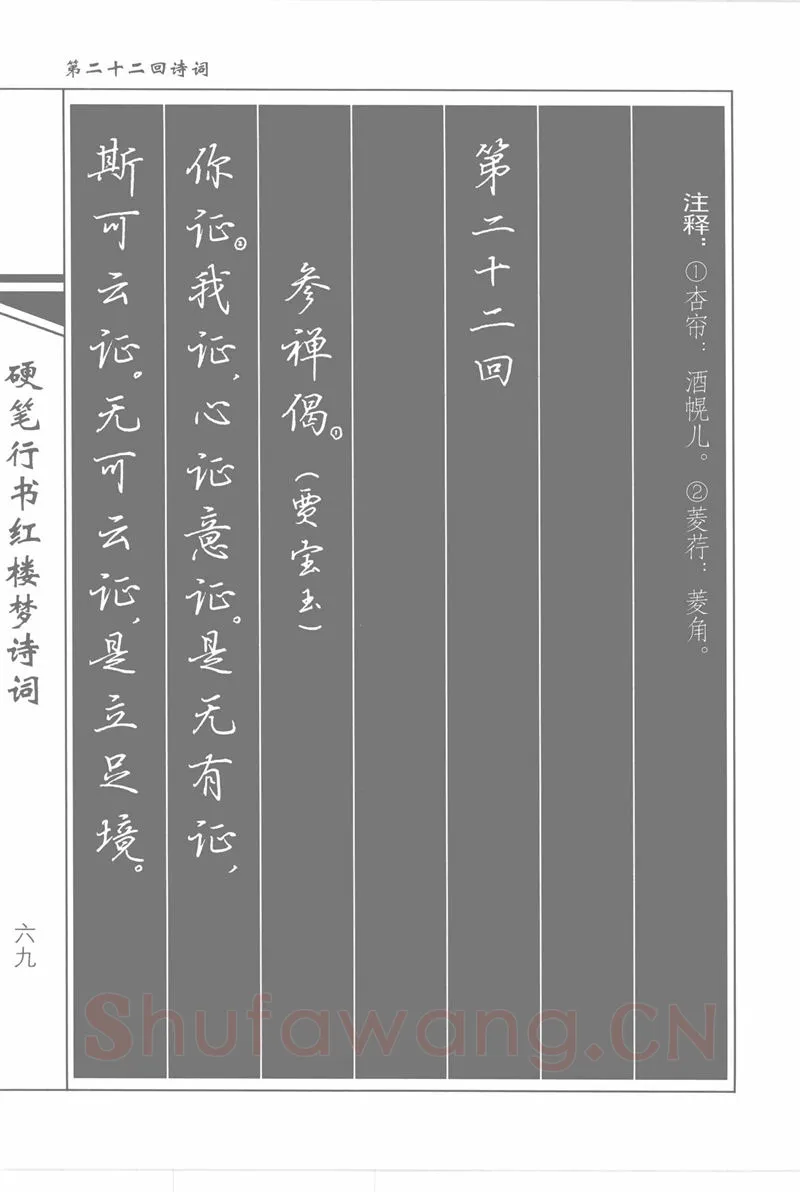 第二十二回诗词
注释：①杏帘：酒幌儿。②菱荇：菱角。
第二十二回
参禅偈。①（贾宝玉）
你证。②我证，心证意证。是无有证，
斯可云证。无可云证，是立足境。
硬笔行书红楼梦诗词
六九
Shufawang.CN